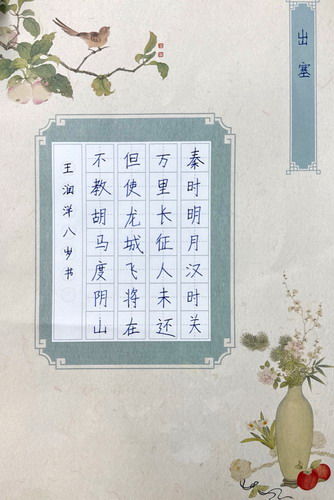 出塞
秦时明月汉时关
万里长征人未还
但使龙城飞将在
不教胡马度阴山
王润洋八岁书